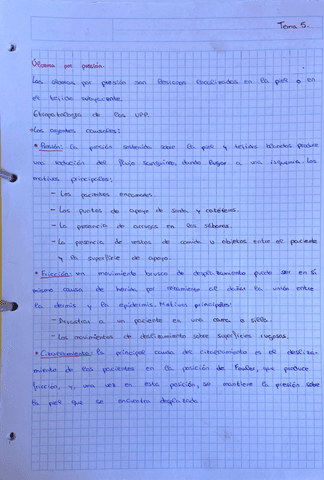 Tema 5.
Úlceras por presión.
Las úlceras por presión son lesiones localizadas en la piel o en
el tejido subyacente.
Etiopatología de las UPP.
Los agentes causales:
• Presión: la presión sostenida sobre la piel y tejidos blandos produce
una reducción del flujo sanguíneo, dando lugar a una isquemia. Los
motivos principales:
- Los pacientes encamados.
- Los puntos de apoyo de sonda y catéteres.
- La presencia de arrugas en las sábanas.
- La presencia de restos de comida u objetos entre el paciente
y la superficie de apoyo.
• Fricción: un movimiento brusco de desplazamiento puede ser en sí
mismo causa de herida por rozamiento al dañar la unión entre
la dermis y la epidermis. Motivos principales:
- Arrastrar a un paciente en una cama o silla.
- Los movimientos de deslizamiento sobre superficies rugosas.
• Cizallamiento: la principal causa del cizallamiento es el desliza-
miento de los pacientes en la posición de Fowler, que produce
fricción, y, una vez en esta posición, se mantiene la presión sobre
la piel que se encuentra desplazada.